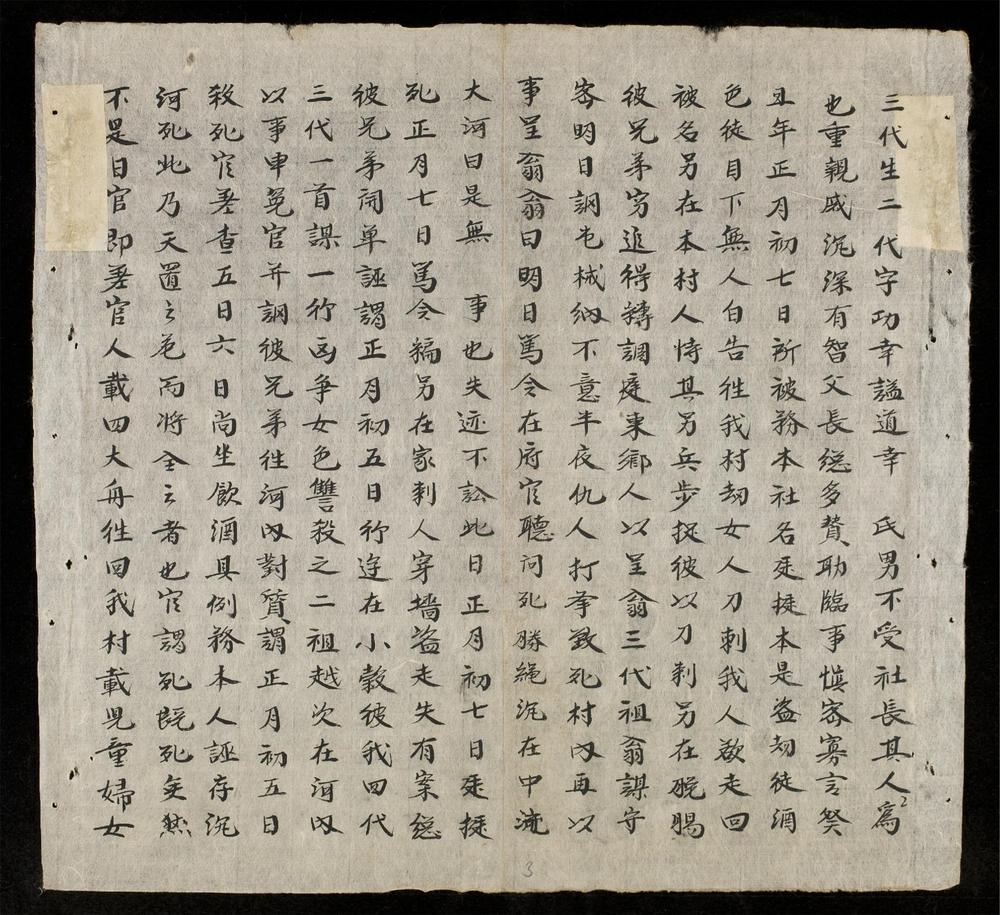 三代生二代字功幸謚道幸 氏男不受社長其人為
也重親戚沉深有智父長總多贊助臨事慎密寡言癸
丑年正月初七日所被務本社名𨑜挺本是盜劫徒酒
色徒目下無人白告徃我村劫女人刀刺我人欲走回
被名另在本村人恃其另兵步捉彼以刀刺另在脫賜
彼兄弟穷追得轉調庭東鄉人以呈翁三代祖翁謀守
密明日詗屯械納不意半夜仇人打夆致死村内再以
事呈翁翁曰明日篤令在府官聽问死勝繩沉在中流
大河曰是無 事也失迹不訟此日正月初七日𨑜挺
死正月七日篤令縞另在家刺人穿墙盜走失有案總
彼兄弟闹单誣謂正月初五日行逰在小穀彼我四代
三代一首謀一行凶争女色讐殺之二祖越次在河内
以事申冤官并詗彼兄弟徃河内對質謂正月初五日
殺死官差查五日六日尚坐飲酒具例務本人誣存沉
河死此乃天置之危而將全之者也官謂死既死矣然
不是日官即差官人載四大舟徃回我村載児童婦女
2
3